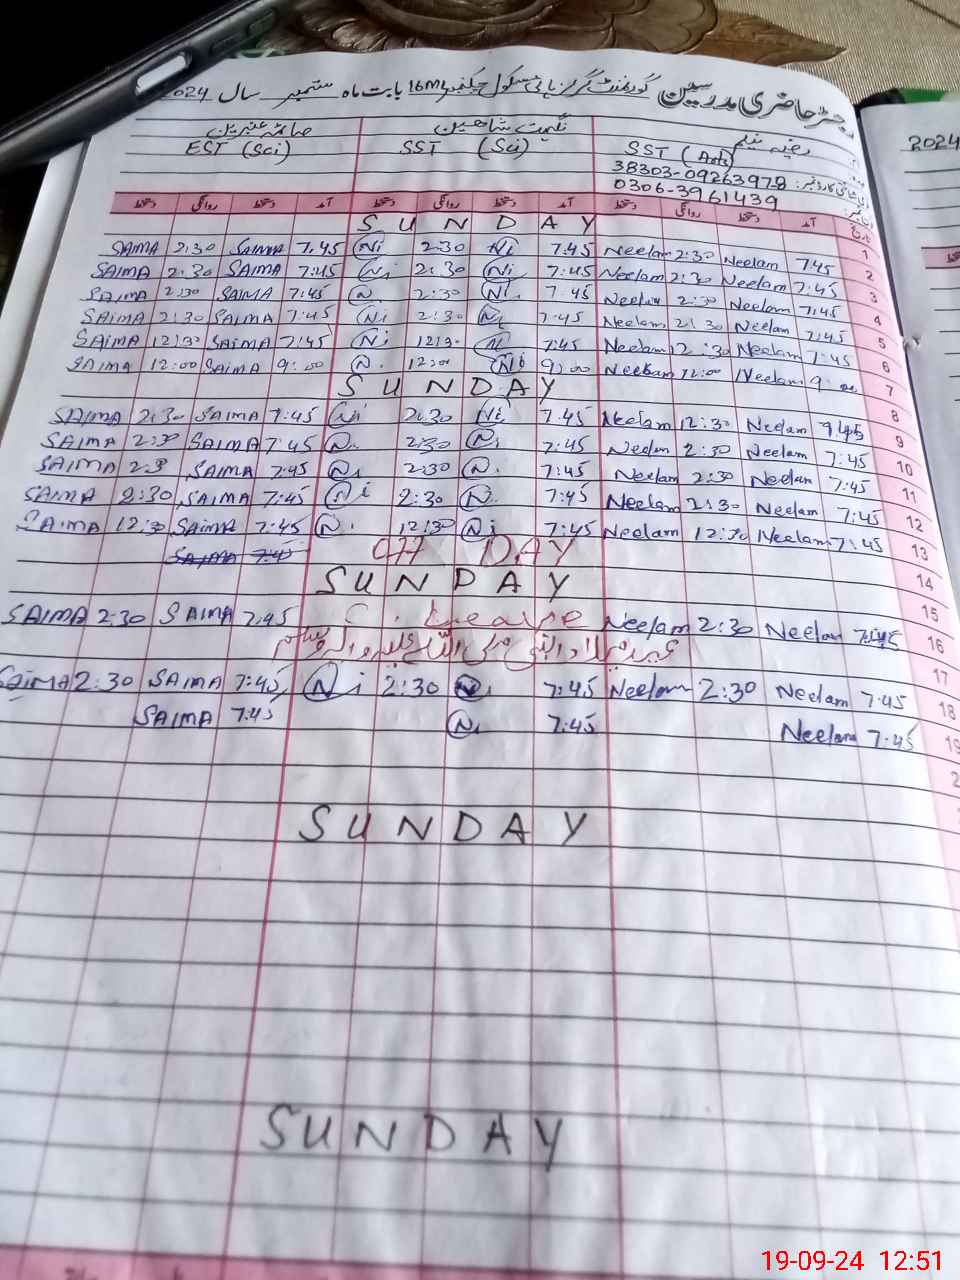 رجسٹر حاضری مدرسین گورنمنٹ گرلز ہائی سکول چکنمبر 16ML بابت ماہ ستمبر سال 2024
2024
صائمہ عنبرین نگہت شاہین رضیہ نیلم
EST (Sci) SST (Sci) SST (Arts)
38303-09263978
0306-3961439
دستخط روانگی دستخط آمد دستخط روانگی دستخط آمد دستخط روانگی دستخط آمد تاریخ
SUNDAY 1
SAIMA 2:30 SAIMA 7:45 Ni 2:30 Ni 7:45 Neelam 2:30 Neelam 7:45 2
SAIMA 2:30 SAIMA 7:45 Ni 2:30 Ni 7:45 Neelam 2:30 Neelam 7:45 3
SAIMA 2:30 SAIMA 7:45 N. 2:30 Ni 7:45 Neelam 2:30 Neelam 7:45 4
SAIMA 2:30 SAIMA 7:45 Ni 2:30 N. 7:45 Neelam 2:30 Neelam 7:45 5
SAIMA 12:30 SAIMA 7:45 Ni 12:30 N 7:45 Neelam 12:30 Neelam 7:45 6
SAIMA 12:00 SAIMA 9:00 N. 12:00 Ni 9:00 Neelam 12:00 Neelam 9:00 7
SUNDAY 8
SAIMA 2:30 SAIMA 7:45 Ni 2:30 Ni 7:45 Neelam 12:30 Neelam 7:45 9
SAIMA 2:30 SAIMA 7:45 N. 2:30 N. 7:45 Neelam 2:30 Neelam 7:45 10
SAIMA 2:30 SAIMA 7:45 N. 2:30 N. 7:45 Neelam 2:30 Neelam 7:45 11
SAIMA 2:30 SAIMA 7:45 Ni 2:30 N. 7:45 Neelam 2:30 Neelam 7:45 12
SAIMA 12:30 SAIMA 7:45 N. 12:30 Ni 7:45 Neelam 12:30 Neelam 7:45 13
SAIMA 7:45 OFF DAY 14
SUNDAY 15
SAIMA 2:30 SAIMA 7:45 Neelam 2:30 Neelam 7:45 16
عید میلاد النبی صلی اللہ علیہ وآلہ وسلم 17
SAIMA 2:30 SAIMA 7:45 Ni 2:30 N. 7:45 Neelam 2:30 Neelam 7:45 18
SAIMA 7:45 N. 7:45 Neelam 7:45 19
SUNDAY
SUNDAY
19-09-24 12:51